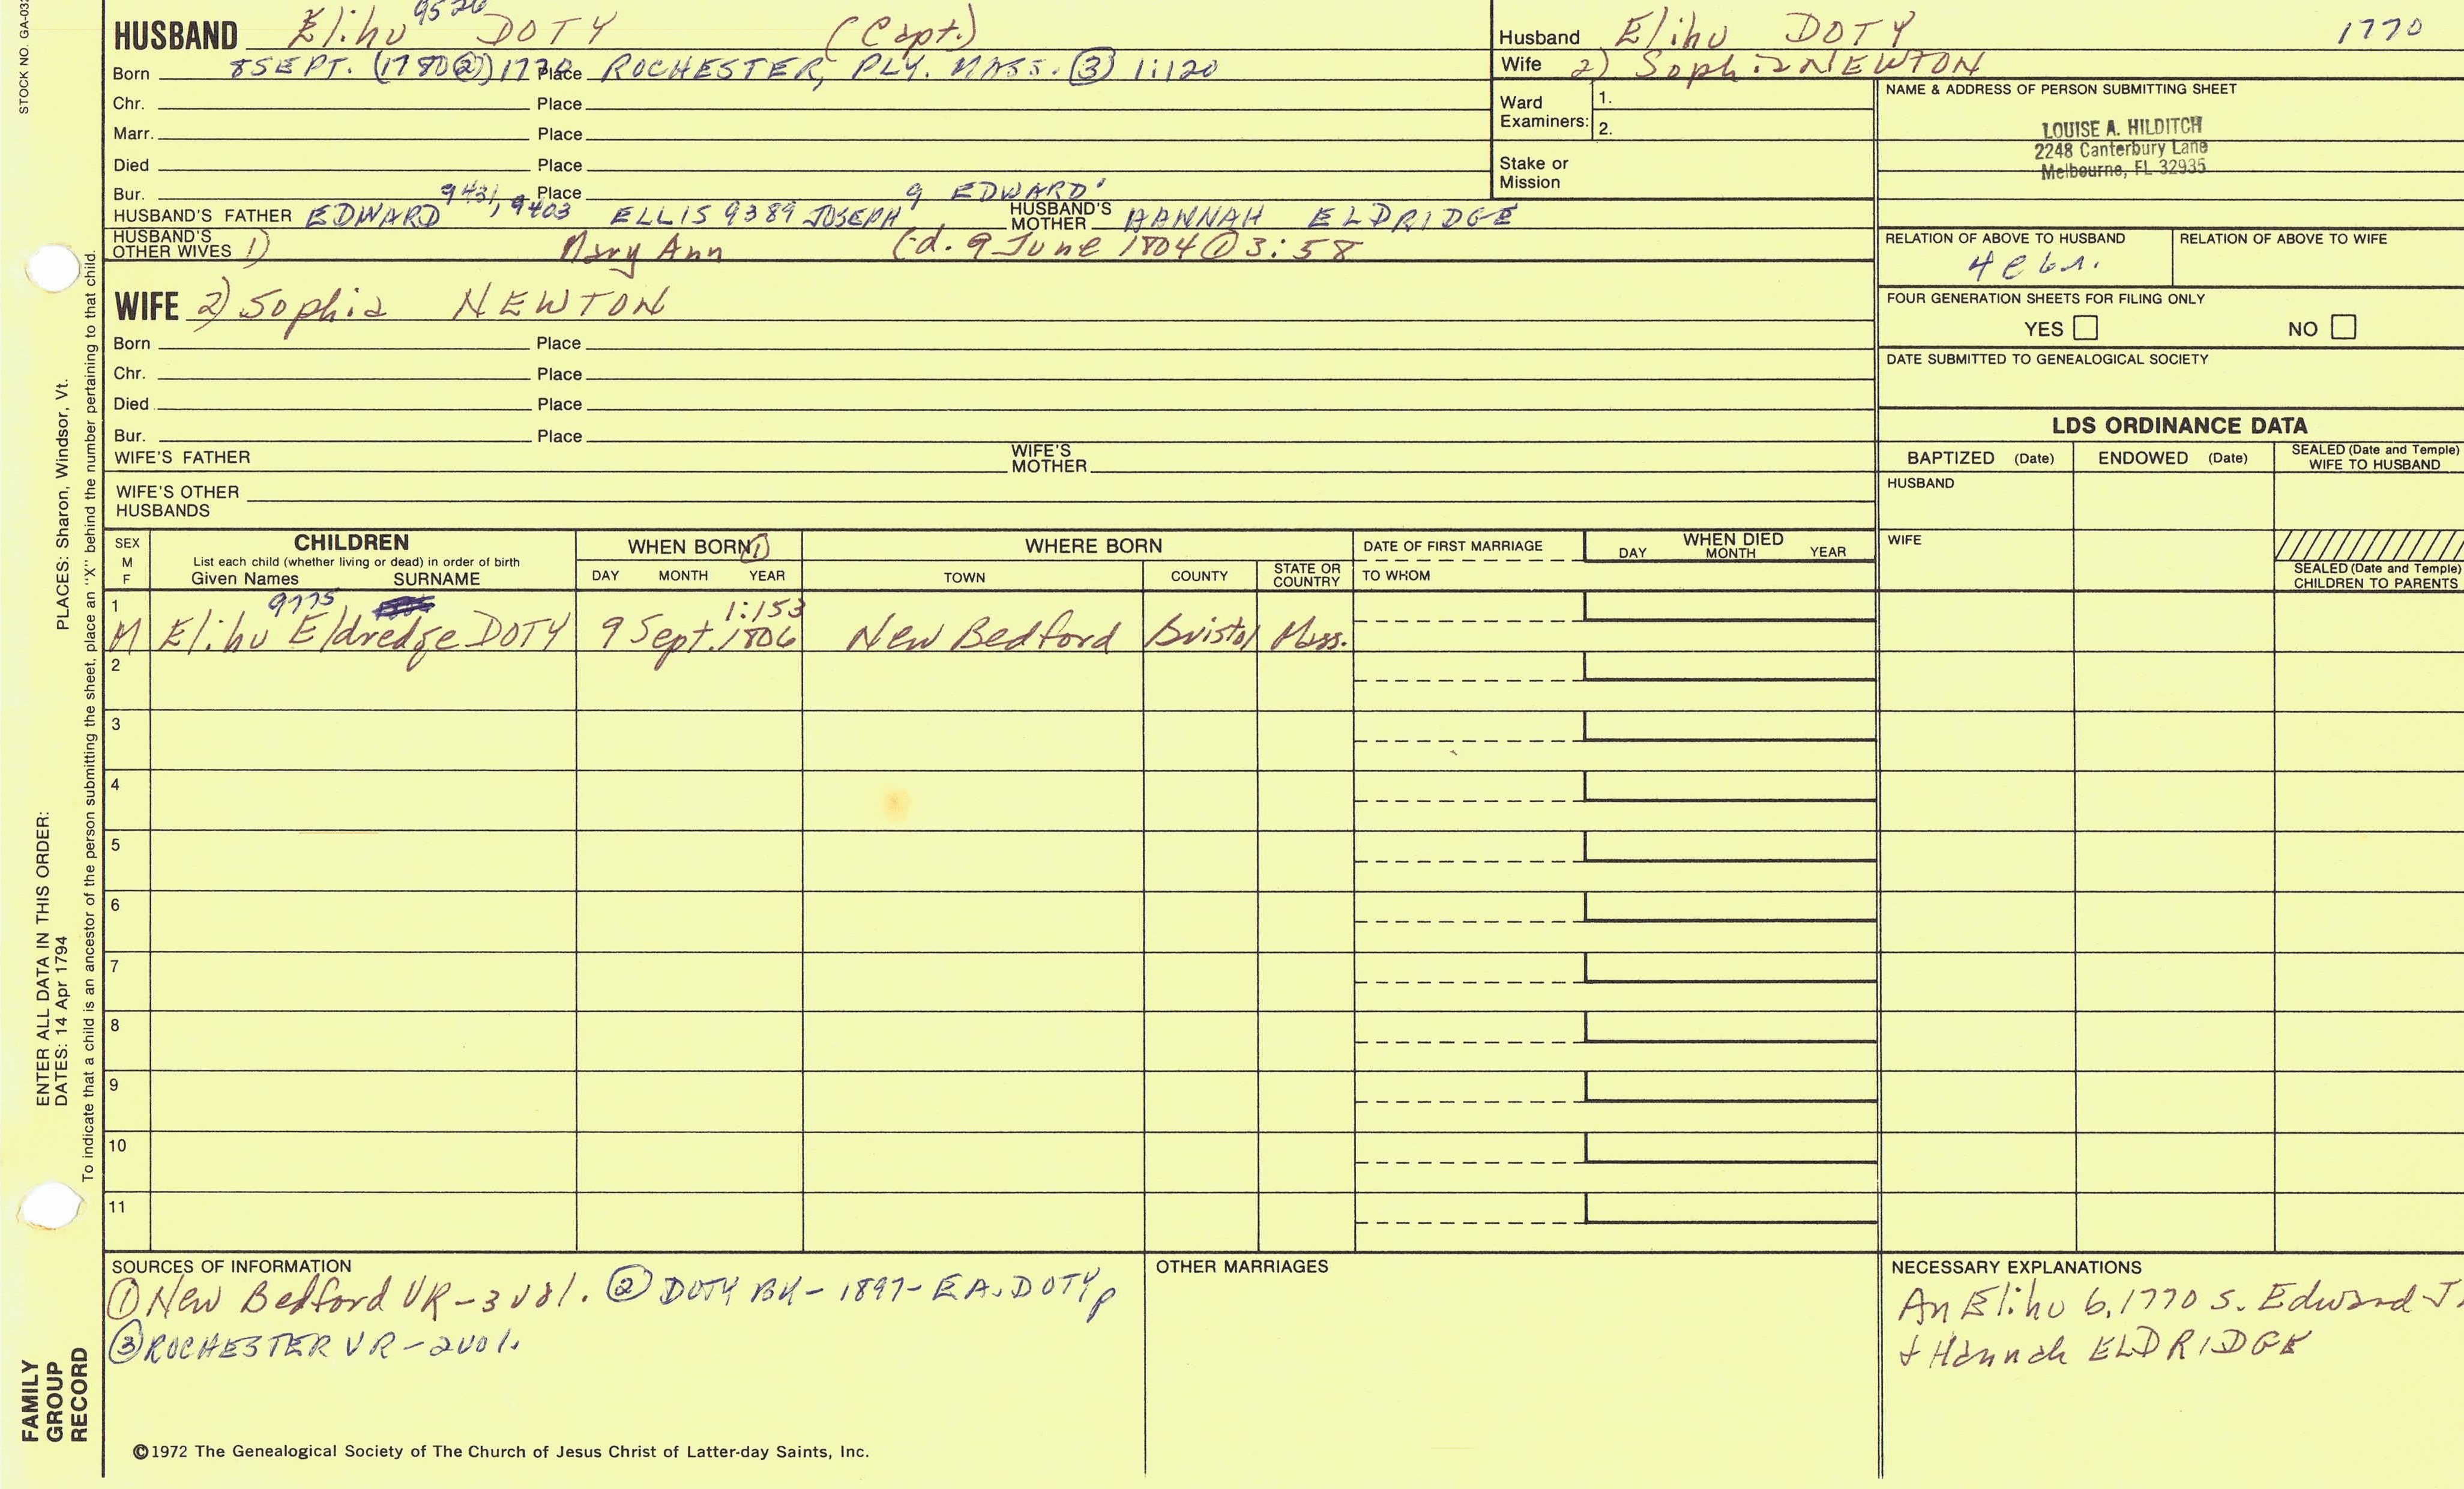 STOCK NO. GA-032
HUSBAND Elihu 9526 DOTY (Capt.)
Born 8 SEPT. (1780②) 1770 Place ROCHESTER, PLY. MASS. ③ 1:120
Chr. Place
Marr. Place
Died Place
Bur. Place
HUSBAND'S FATHER EDWARD 9431, 9403 ELLIS 9389 JOSEPH 9 EDWARD' HUSBAND'S MOTHER HANNAH ELDRIDGE
HUSBAND'S OTHER WIVES 1) Mary Ann (-d. 9 June 1804 ① 3:58
WIFE 2) Sophia NEWTON
Born Place
Chr. Place
Died Place
Bur. Place
WIFE'S FATHER WIFE'S MOTHER
WIFE'S OTHER HUSBANDS
Husband Elihu DOTY 1770
Wife 2) Sophia NEWTON
Ward Examiners: 1.
2.
Stake or Mission
NAME & ADDRESS OF PERSON SUBMITTING SHEET
LOUISE A. HILDITCH
2248 Canterbury Lane
Melbourne, FL 32935
RELATION OF ABOVE TO HUSBAND RELATION OF ABOVE TO WIFE
FOUR GENERATION SHEETS FOR FILING ONLY
YES NO
DATE SUBMITTED TO GENEALOGICAL SOCIETY
LDS ORDINANCE DATA
BAPTIZED (Date) ENDOWED (Date) SEALED (Date and Temple) WIFE TO HUSBAND
HUSBAND
WIFE
SEALED (Date and Temple) CHILDREN TO PARENTS
SEX M F
CHILDREN
List each child (whether living or dead) in order of birth
Given Names SURNAME
WHEN BORN ①
DAY MONTH YEAR
WHERE BORN
TOWN COUNTY STATE OR COUNTRY
DATE OF FIRST MARRIAGE
TO WHOM
WHEN DIED
DAY MONTH YEAR
1 9775 1:153
M Elihu Eldredge DOTY 9 Sept. 1806 New Bedford Bristol Mass.
2
3
4
5
6
7
8
9
10
11
SOURCES OF INFORMATION
① New Bedford VR - 3 vol. ② DOTY BK - 1897 - E.A. DOTY p
③ ROCHESTER VR - 2 vol.
OTHER MARRIAGES
NECESSARY EXPLANATIONS
An Elihu b. 1770 s. Edward
+ Hannah ELDRIDGE
©1972 The Genealogical Society of The Church of Jesus Christ of Latter-day Saints, Inc.
ENTER ALL DATA IN THIS ORDER:
DATES: 14 Apr 1794 PLACES: Sharon, Windsor, Vt.
To indicate that a child is an ancestor of the person submitting the sheet, place an "X" behind the number pertaining to that child.
FAMILY GROUP RECORD